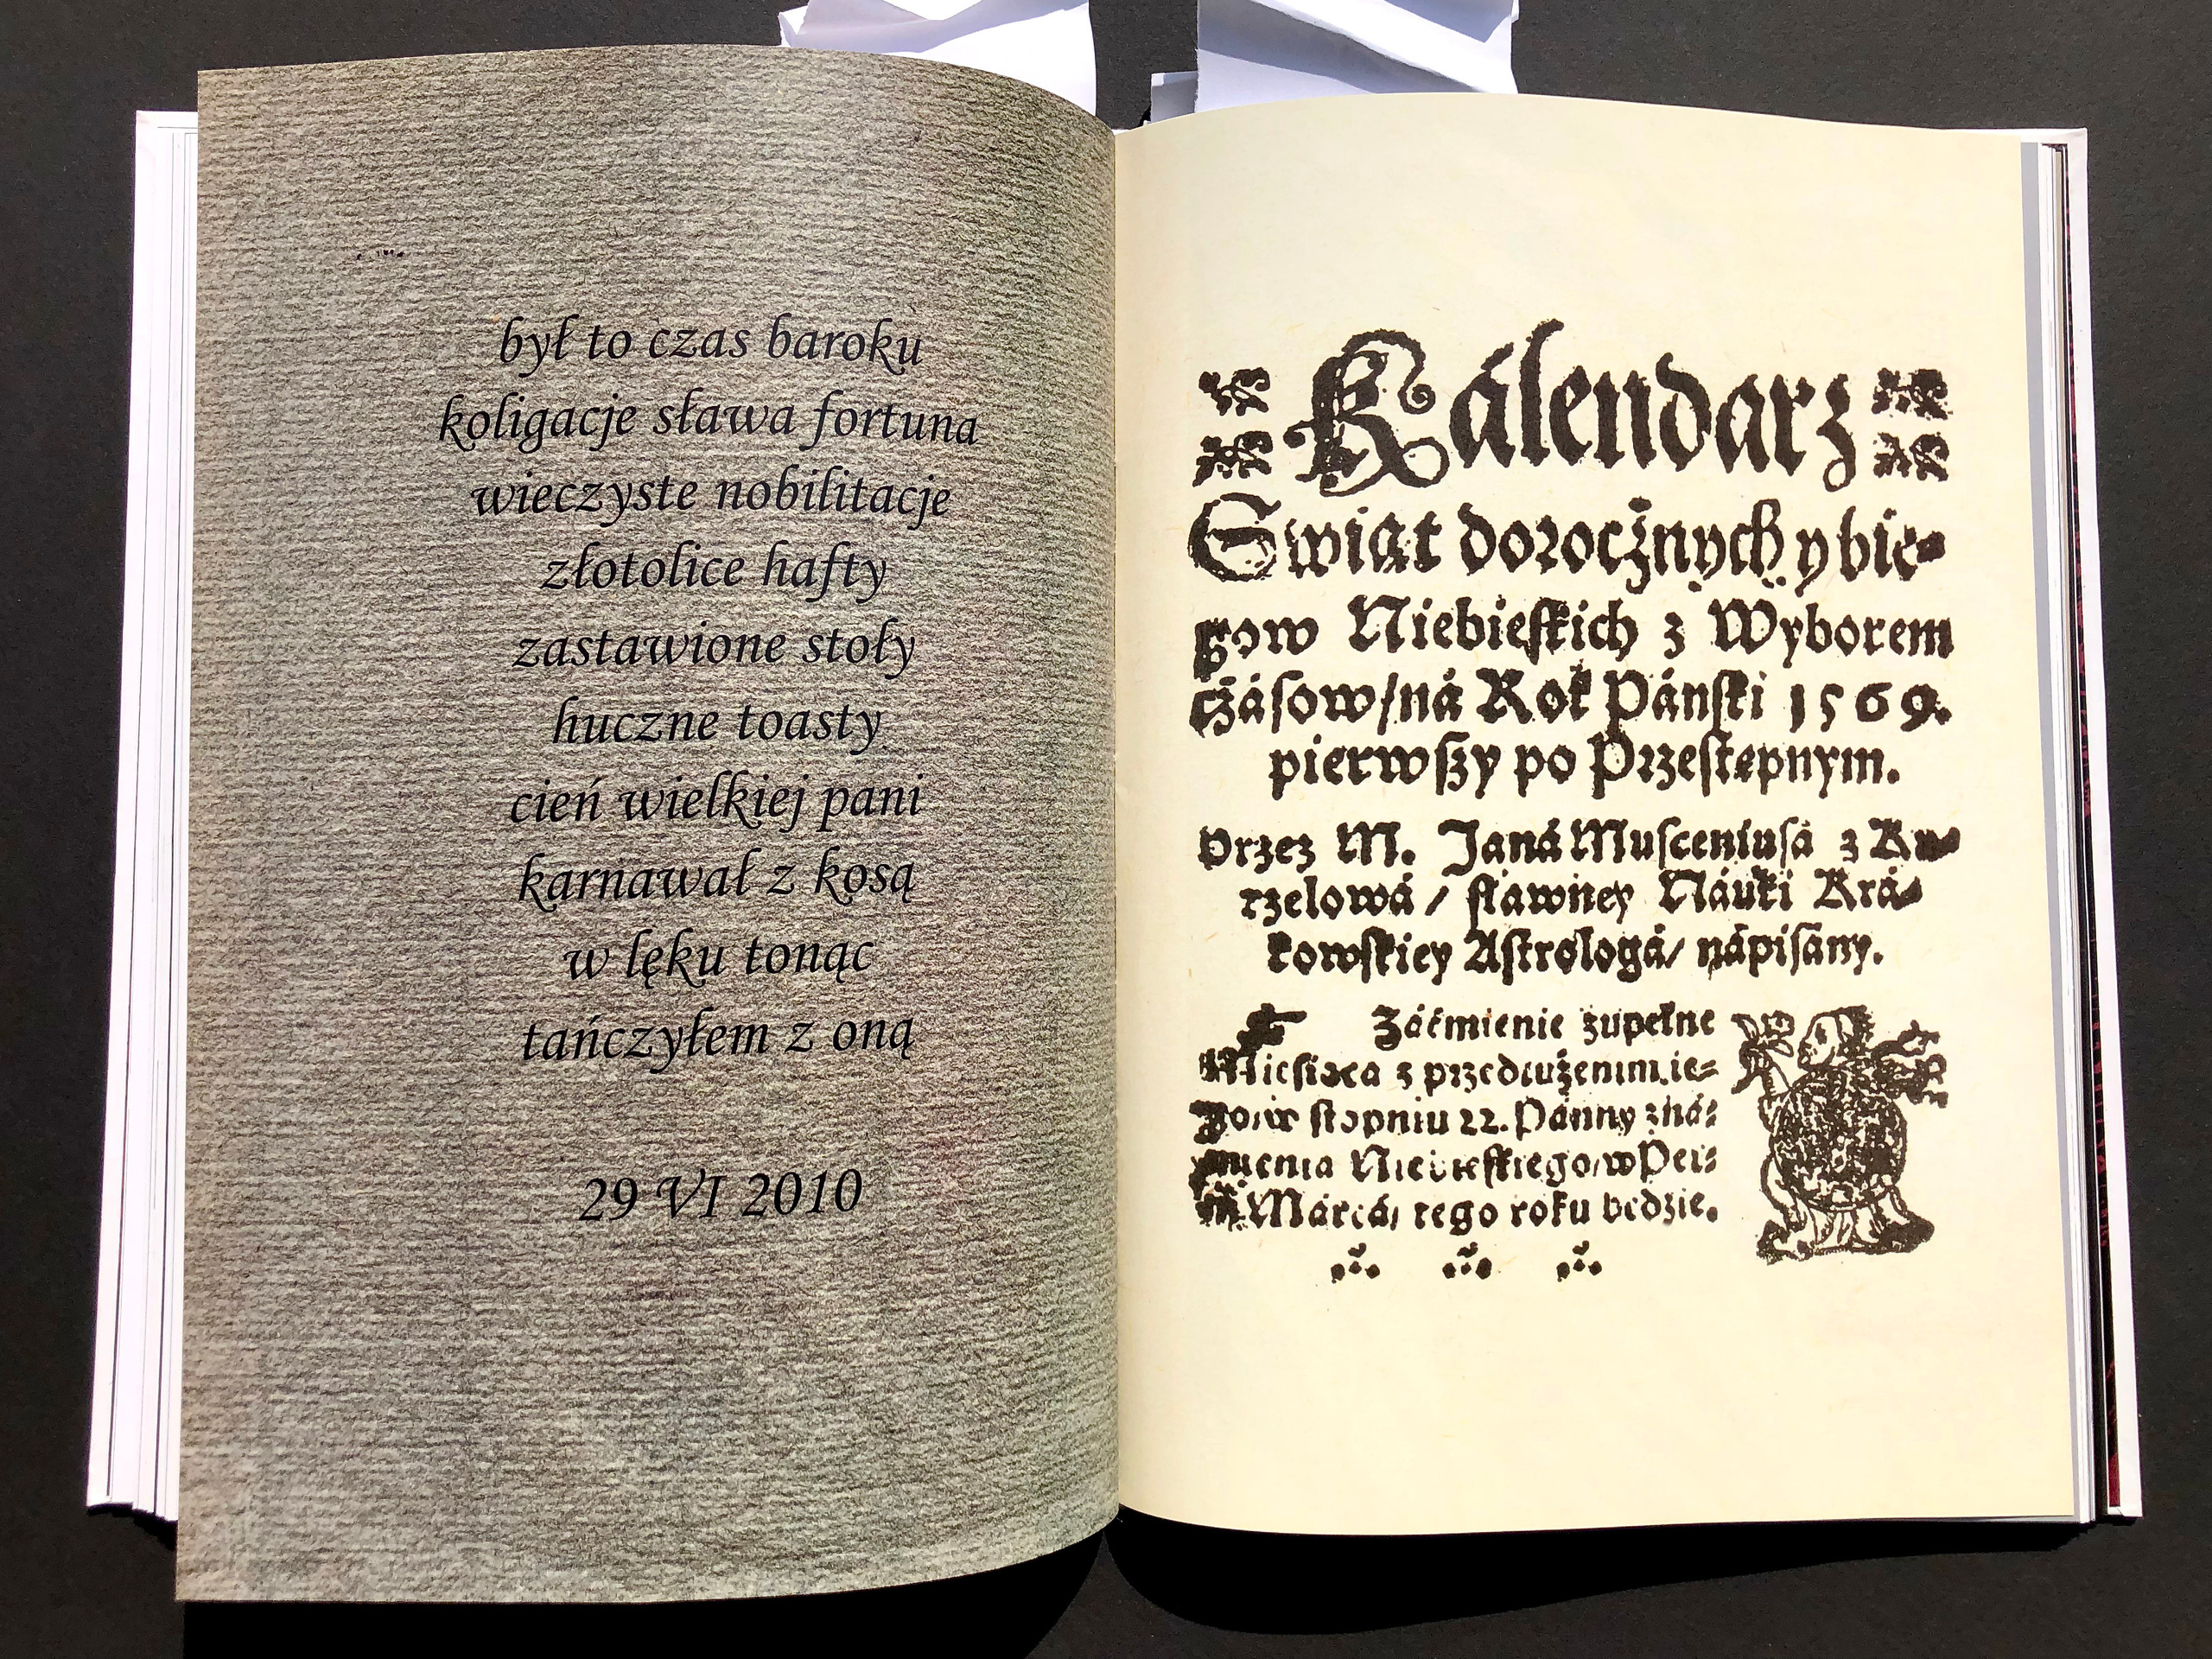 był to czas baroku
koligacje sława fortuna
wieczyste nobilitacje
złotolice hafty
zastawione stoły
huczne toasty
cień wielkiej pani
karnawał z kosą
w lęku tonąc
tańczyłem z oną
29 VI 2010
Kálendarz
Swiąt dorocżnych y bie-
gow Niebieſkich z Wyborem
cżáſow/ná Rok Pánſki 1569.
pierwſzy po Przeſtępnym.
Przez M. Janá Muſceniuſá z Ku-
rzelowá / ſławney Náuki Krá-
kowſkiey Aſtrologá/ nápiſány.
Záćmienie zupełne
Mieſiąca z przedłużenim ie-
go/w ſtopniu 22. Pánny zná-
mienia Niebieſkiego/w
Márcá/ tego roku będzie.